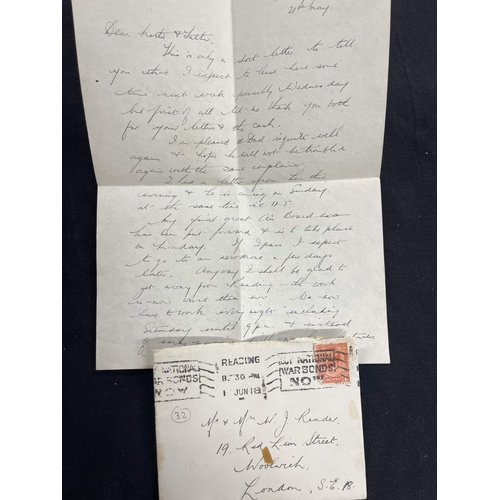 31st May
Dear Mother & Father,
This is only a short letter to tell
you that I expect to leave here some
time next week possibly Wednesday
but first of all let me thank you both
for your letters & the cash.
I am pleased Dad is quite well
again & hope he will not be troubled
again with the same complaint.
I had a letter from this
morning & he is coming on Sunday
at the same time i.e. 12.5
My final great Air Board exam
has been put forward & is to take place
on Monday. If I pass I expect
to go to an aerodrome a few days
later. Anyway I shall be glad to
get away from Reading - the work
is now worse than ever. We now
have to work every night including
Saturday until 9pm & instead
of
NATIONAL
WAR BONDS
NOW
READING
8.30 PM
1 JUN 18
BUY NATIONAL
WAR BONDS
NOW
32
Mr & Mrs W. J. Reader,
19, Red Lion Street,
Woolwich,
London, S.E. 18.